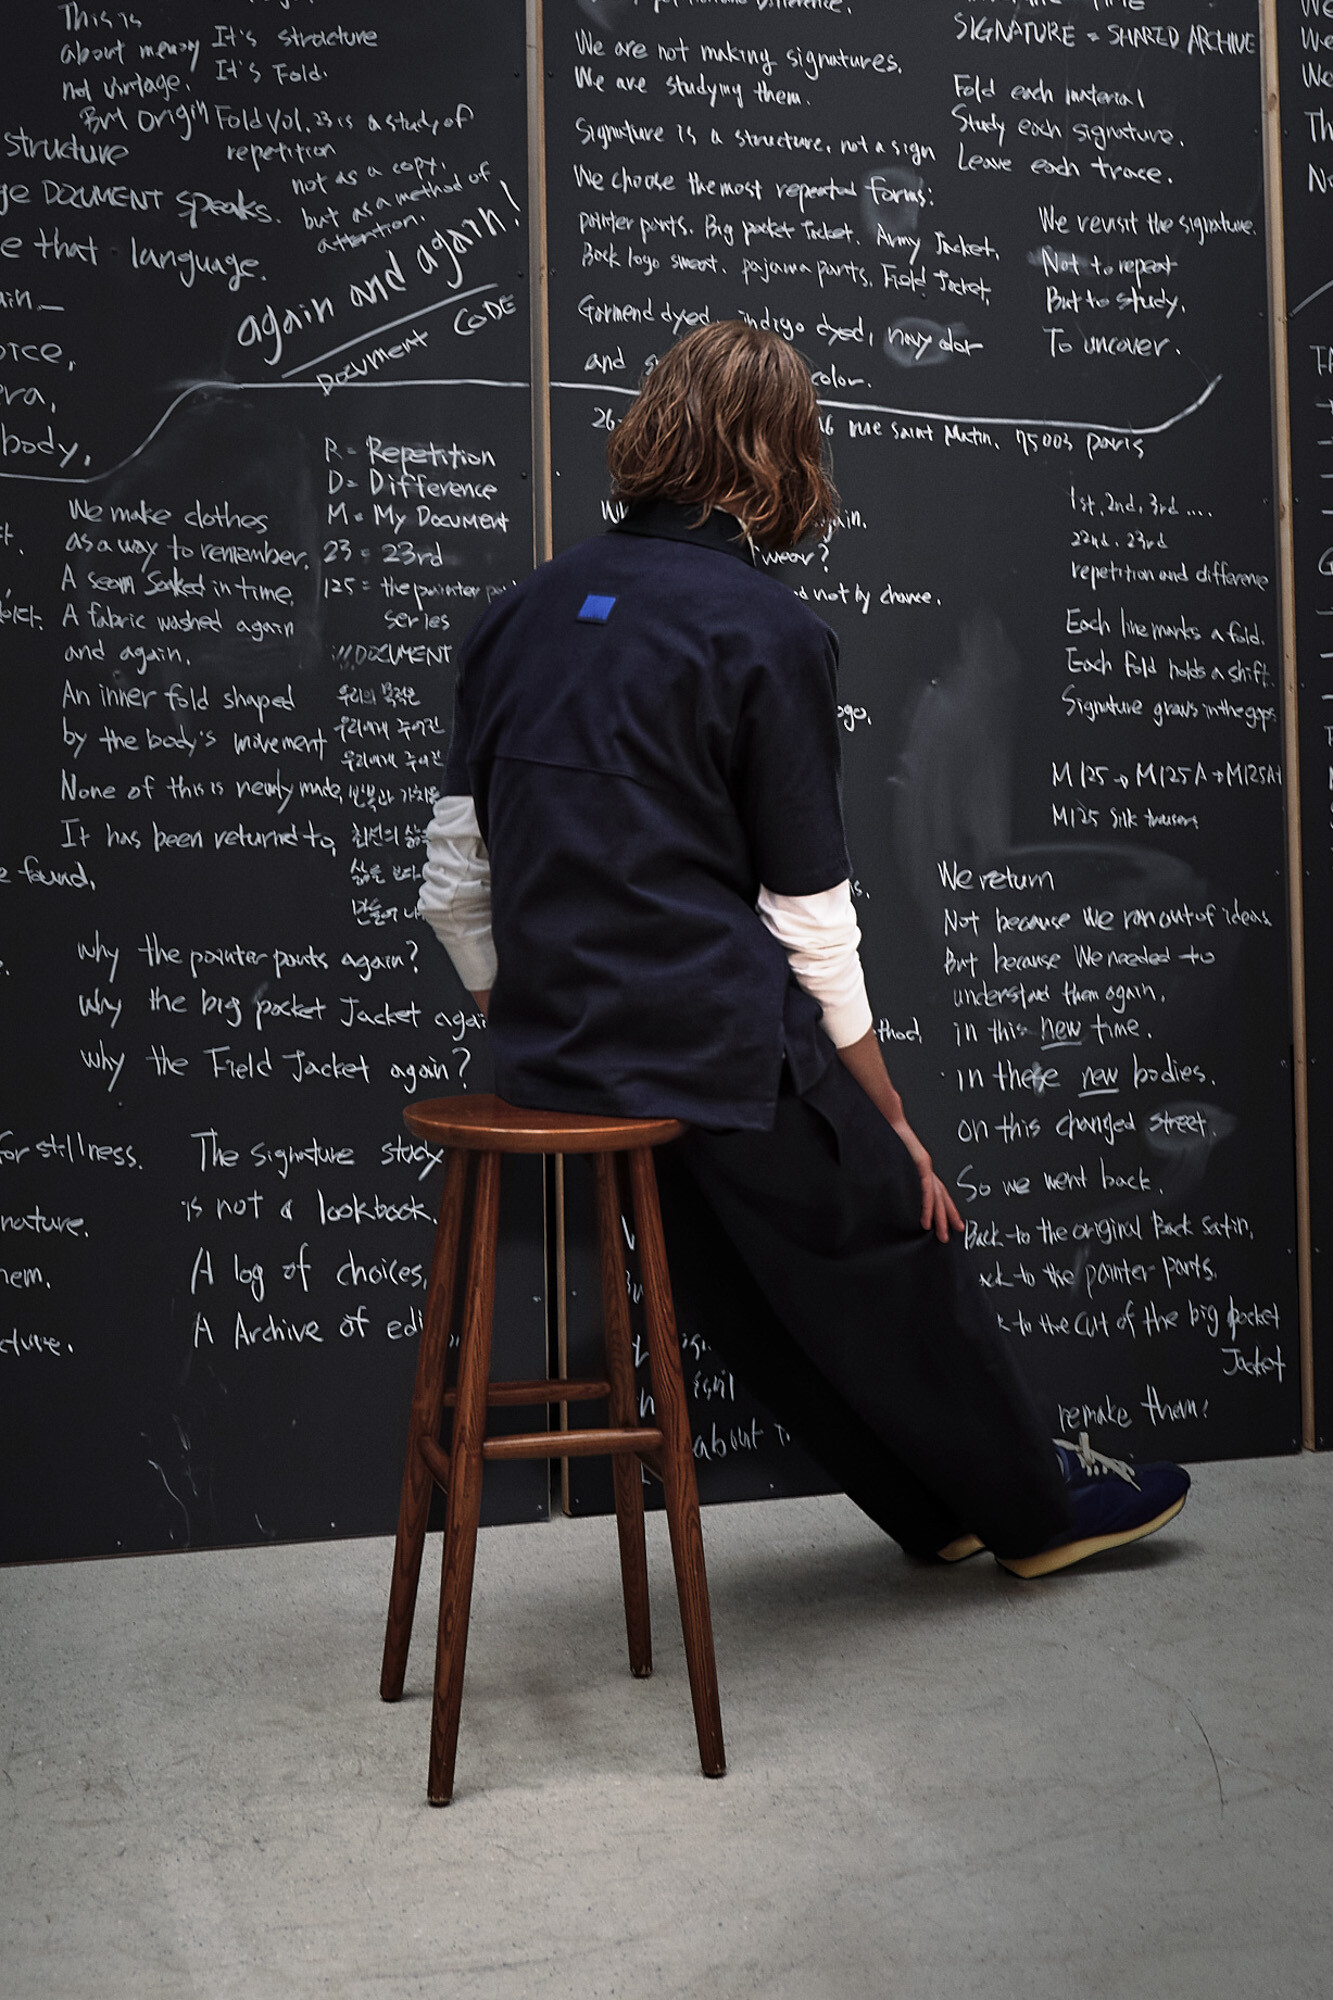 This is
about memory
not vintage.
But Origin
It's structure
It's Fold.
Fold Vol. 23 is a study of
repetition
not as a copy,
but as a method of
attention.
structure
DOCUMENT speaks.
that language.
again and again!
DOCUMENT CODE
body,
R = Repetition
D = Difference
M = My Document
23 = 23rd
125 = the pointer
series
DOCUMENT
우리의 목적은
우리에게 주어진
우리에게 주어진
We make clothes
as a way to remember.
A seam soaked in time,
A fabric washed again
and again.
An inner fold shaped
by the body's movement
None of this is newly made,
It has been returned to,
found,
why the pointer pants again?
why the big pocket Jacket
why the Field Jacket again?
for stillness.
The signature study
is not a lookbook.
A log of choices,
A Archive of
We are not making signatures.
We are studying them.
Signature is a structure, not a sign
We choose the most repeated forms:
pointer pants. Big pocket Jacket. Army Jacket.
Back logo sweat. pajama pants. Field Jacket.
Garmend dyed, indigo dyed, navy
and
color.
26
rue Saint Martin, 75003 paris
wear?
not by chance.
SIGNATURE = SHARED ARCHIVE
Fold each material
Study each signature.
Leave each trace.
We revisit the signature.
Not to repeat
But to study.
To uncover.
1st, 2nd, 3rd ....
22nd. 23rd
repetition and difference
Each line marks a fold.
Each fold holds a shift.
Signature grows in the gaps
M125 → M125A → M125A+
M125 Silk trousers
We return
Not because we ran out of ideas
But because We needed to
understand them again.
in this new time.
in these new bodies.
on this changed street.
So we went back.
Back to the original Back satin.
to the pointer pants.
to the cut of the big pocket
Jacket
remake them!
about